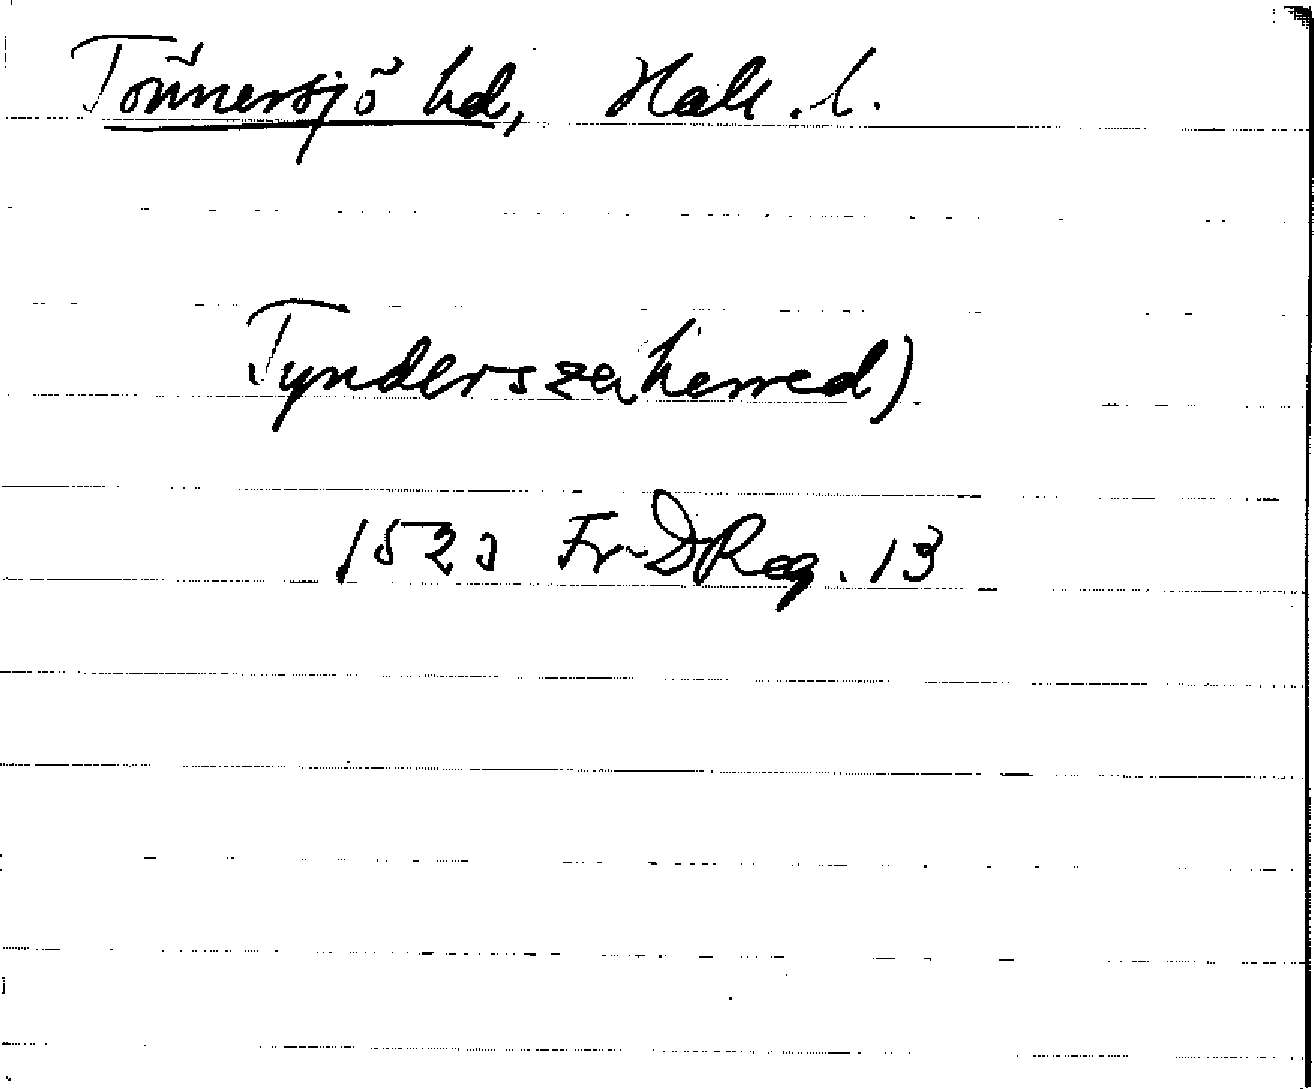 Tönnersjö hd, Hall. l.
Tynderszeherred)
1523 Fr DReg. 13